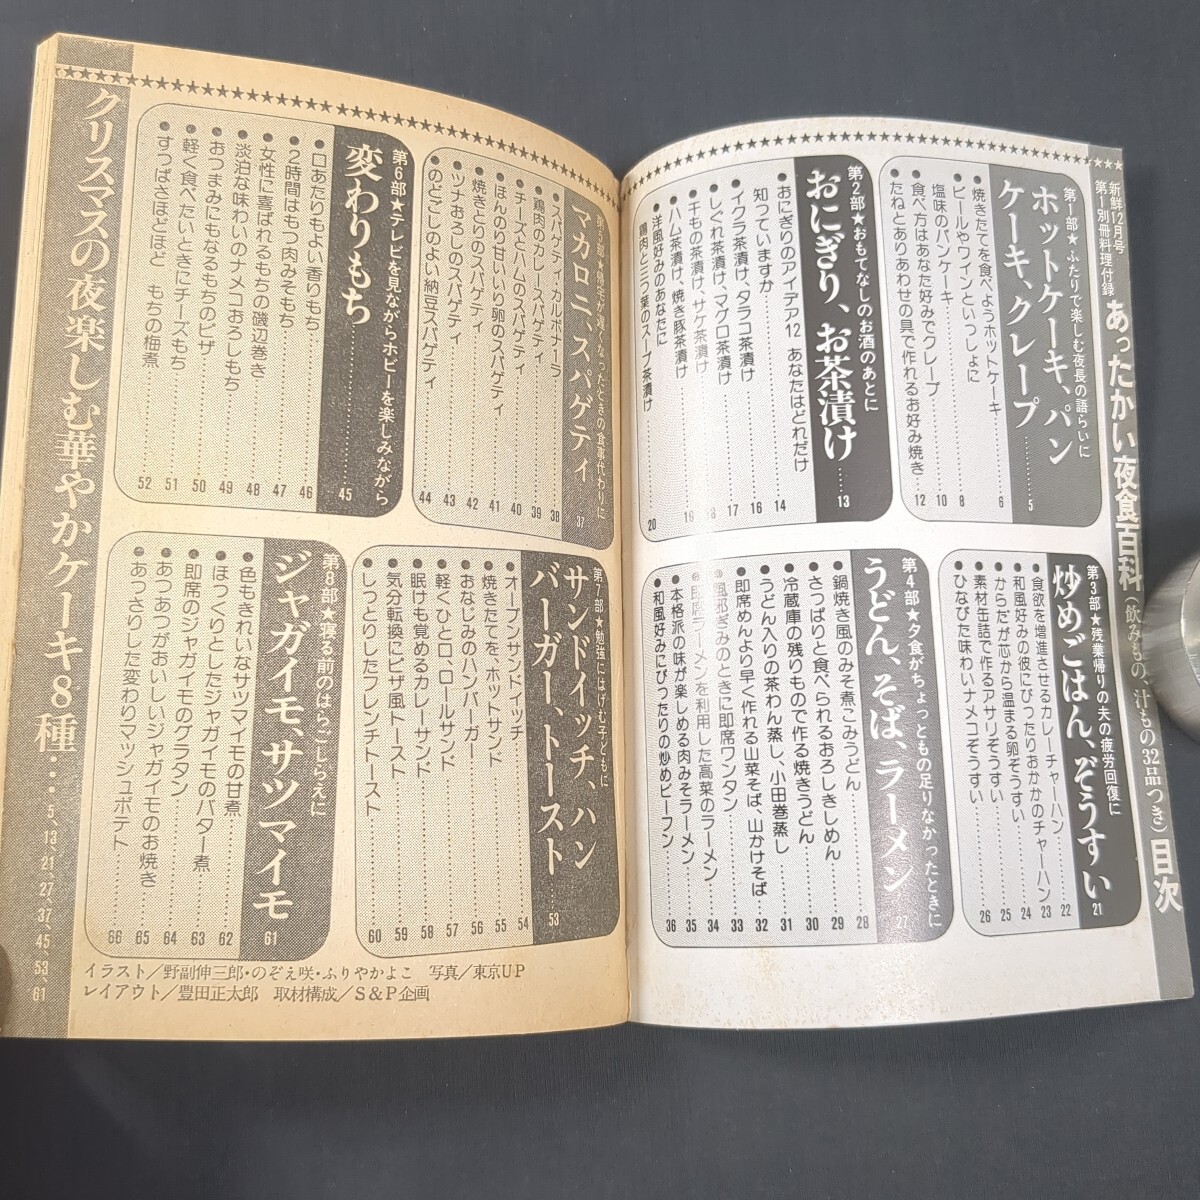 新鮮12月号
第1別冊料理付録
あったかい夜食百科(飲みもの、汁もの32品つき)目次
第1部★ふたりで楽しむ夜長の語らいに
ホットケーキ、パン
ケーキ、クレープ……5
●焼きたてを食べようホットケーキ……6
●ビールやワインといっしょに
塩味のパンケーキ……8
●食べ方はあなた好みでクレープ……10
●たねとありあわせの具で作れるお好み焼き……12
第2部★おもてなしのお酒のあとに
おにぎり、お茶漬け……13
●おにぎりのアイデア12 あなたはどれだけ
知っていますか……14
●イクラ茶漬け、タラコ茶漬け……16
●しぐれ茶漬け、マグロ茶漬け……17
●干もの茶漬け、サケ茶漬け……18
●ハム茶漬け、焼き豚茶漬け……19
●洋風好みのあなたに
鶏肉と三つ葉のスープ茶漬け……20
第3部★残業帰りの夫の疲労回復に
炒めごはん、ぞうすい……21
●食欲を増進させるカレーチャーハン……22
●和風好みの彼にぴったりおかかのチャーハン……23
●からだが芯から温まる卵ぞうすい……24
●素材缶詰で作るアサリぞうすい……25
●ひなびた味わいナメコぞうすい……26
第4部★夕食がちょっともの足りなかったときに
うどん、そば、ラーメン……27
●鍋焼き風のみそ煮こみうどん……28
●さっぱりと食べられるおろしきしめん……29
●冷蔵庫の残りもので作る焼きうどん……30
●うどん入りの茶わん蒸し、小田巻蒸し……31
●即席めんより早く作れる山菜そば、山かけそば……32
●風邪ぎみのときに即席ワンタン……33
●即席ラーメンを利用した高菜のラーメン……34
●本格派の味が楽しめる肉みそラーメン……35
●和風好みにぴったりの炒めビーフン……36
マカロニ、スパゲティ……37
●スパゲティカルボナーラ……38
●鶏肉のカレースパゲティ……39
●チーズとハムのスパゲティ……40
●ほんのり甘いいり卵のスパゲティ……41
●焼きとりのスパゲティ……42
●ツナおろしのスパゲティ……43
●のどごしのよい納豆スパゲティ……44
第6部★テレビを見ながらホビーを楽しみながら
変わりもち……45
●口あたりもよい香りもち……46
●2時間はもつ肉みそもち……47
●女性に喜ばれるもちの磯辺巻き……48
●淡泊な味わいのナメコおろしもち……49
●おつまみにもなるもちのピザ……50
●軽く食べたいときにチーズもち……51
●すっぱさほどほど もちの梅煮……52
第7部★勉強にはげむ子どもに
サンドイッチ、ハン
バーガー、トースト……53
●オープンサンドイッチ……54
●焼きたてを、ホットサンド……55
●おなじみのハンバーガー……56
●軽くひと口、ロールサンド……57
●眠けも覚めるカレーサンド……58
●気分転換にピザ風トースト……59
●しっとりしたフレンチトースト……60
第8部★寝る前のはらごしらえに
ジャガイモ、サツマイモ……61
●色もきれいなサツマイモの甘煮……62
●ほっくりとしたジャガイモのバター煮……63
●即席のジャガイモのグラタン……64
●あつあつがおいしいジャガイモのお焼き……65
●あっさりした変わりマッシュポテト……66
クリスマスの夜楽しむ華やかケーキ8種……5、13、21、27、37、45、53、61
イラスト／野副伸三郎・のぞえ咲・ふりやかよこ 写真／東京UP
レイアウト／豊田正太郎 取材構成／S&P企画